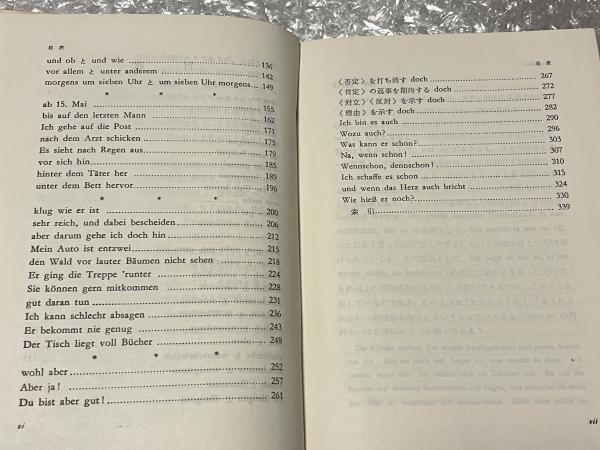 目 次
und ob と und wie 136
vor allem と unter anderem 142
morgens um sieben Uhr と um sieben Uhr morgens 149
* * *
ab 15. Mai 155
bis auf den letzten Mann 162
Ich gehe auf die Post 171
nach dem Arzt schicken 175
Es sieht nach Regen aus 179
vor sich hin 185
hinter dem Täter her 189
unter dem Bett hervor 196
* * *
klug wie er ist 200
sehr reich, und dabei bescheiden 206
aber darum gehe ich doch hin 212
Mein Auto ist entzwei 215
den Wald vor lauter Bäumen nicht sehen 218
Er ging die Treppe 'runter 224
Sie können gern mitkommen 228
gut daran tun 231
Ich kann schlecht absagen 236
Er bekommt nie genug 243
Der Tisch liegt voll Bücher 248
* * *
wohl aber 252
Aber ja! 257
Du bist aber gut! 261
vi
目 次
〈否定〉を打ち消す doch 267
〈肯定〉の返事を期待する doch 272
〈対立〉〈反対〉を示す doch 277
〈理由〉を示す doch 282
Ich bin es auch 290
Wozu auch? 296
Was kann er schon? 303
Na, wenn schon! 307
Wennschon, dennschon! 310
Ich schaffe es schon 315
und wenn das Herz auch bricht 324
Wie hieß er noch? 330
索 引 339
vii